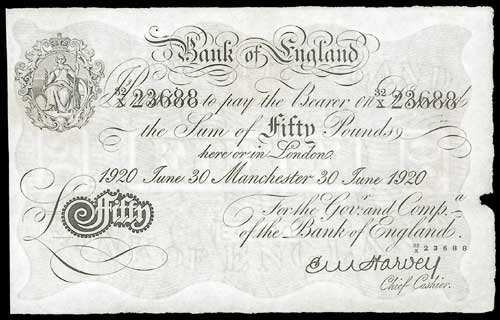 Bank of England
32/X 23688 to pay the Bearer on 32/X 23688
the Sum of Fifty Pounds
here or in London
1920 June 30 Manchester 30 June 1920
For the Govr. and Compa.
of the Bank of England.
£ Fifty
32/X 23688
E M Harvey
Chief Cashier.